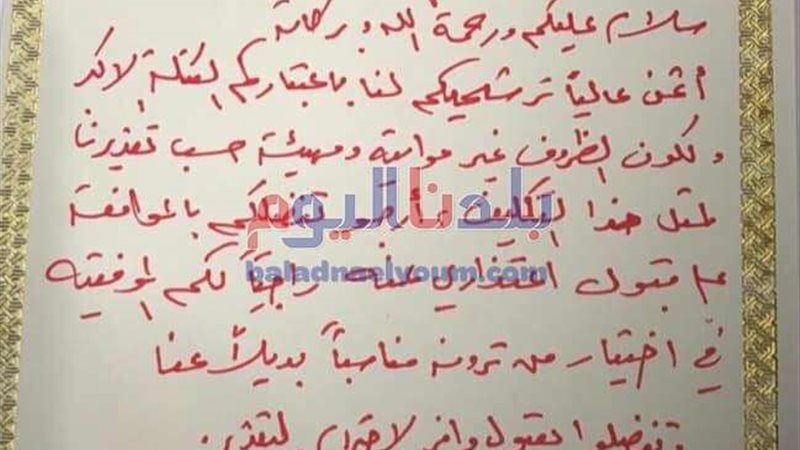 سلام عليكم ورحمة الله وبركاته
أثمن عالياً ترشيحكم لنا باعتباركم الكتلة الاكبر
ولكون الظروف غير مواتية ومهيئة حسب تقديرنا
لمثل هذا التكليف أرجو تفضلكم بالموافقة
على قبول اعتذاري عنه راجياً لكم الموفقية
في اختيار من ترونه مناسباً بديلاً عنا
وتفضلوا بقبول وافر الاحترام والتقدير.
بلدنا اليوم
baladnaelyoum.com